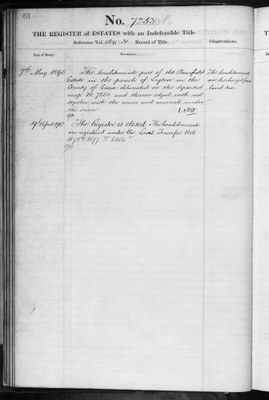 No. 7250
THE REGISTER of ESTATES with an Indefeasible Title
Reference Vol. Record of Title.
Observations.
Date of Entry.
Description
7th May 1896
The hereditaments part of the
Estate in the parish of Leyton in the
County of Essex delineated on the deposited
map No 7250 and thereon edged with red
together with the mines and minerals under
the same
The hereditaments
are discharged from
land tax
The Register is closed. The hereditaments
are registered under the Land Transfer Acts
1875 & 1897